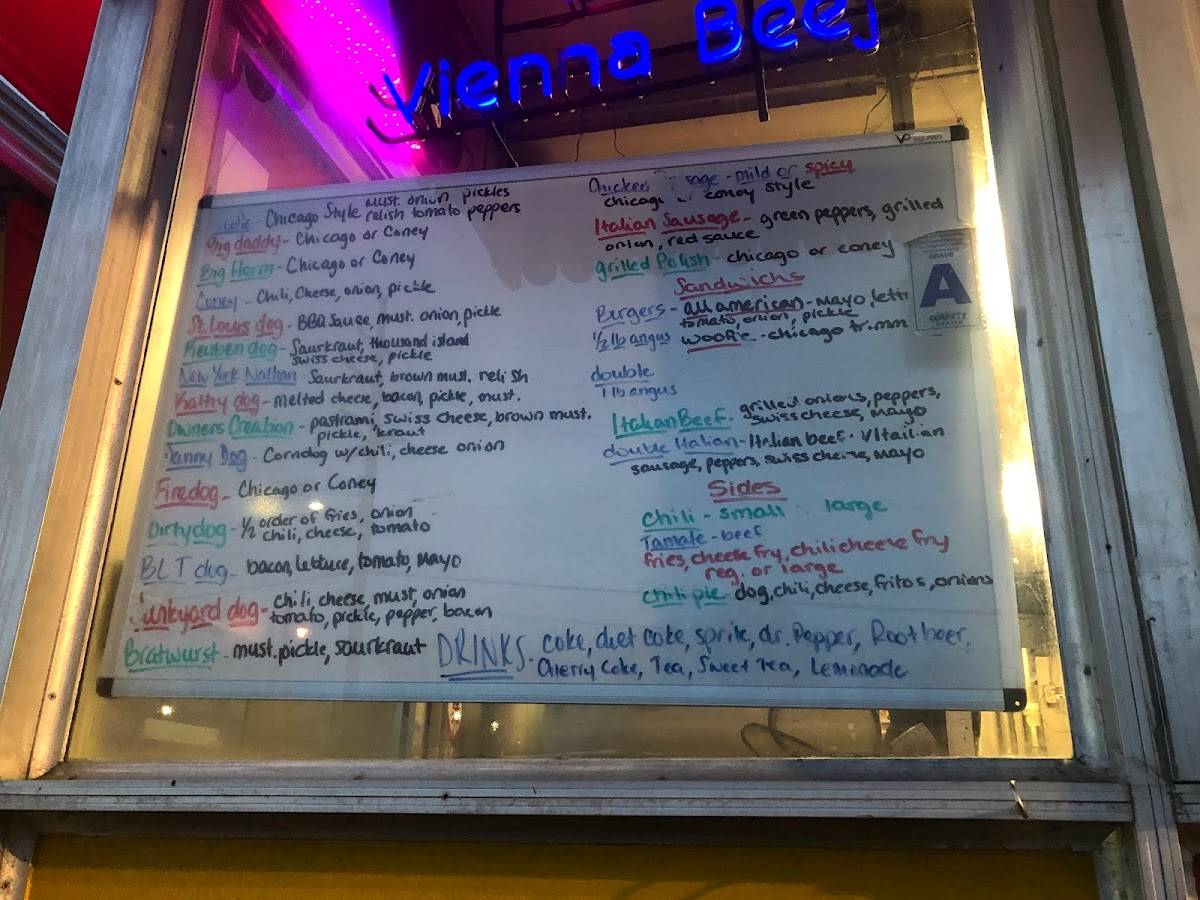 Vienna Beef
must. onion pickles
Chicago Style relish tomato peppers
Big daddy - Chicago or Coney
Big Herm - Chicago or Coney
Coney - Chili, Cheese, onion, pickle
St. Louis dog - BBQ sauce, must. onion, pickle
Reuben dog - Saurkraut, thousand island
swiss cheese, pickle
New York Nathan - Saurkraut, brown must. relish
Kathy dog - melted cheese, bacon, pickle, must.
Owners Creation - pastrami, swiss cheese, brown must.
pickle, kraut
Danny Dog - Corndog w/chili, cheese onion
Firedog - Chicago or Coney
Dirtydog - 1/2 order of fries, onion
chili, cheese, tomato
BLT dog - bacon, lettuce, tomato, mayo
Junkyard dog - chili cheese, must, onion
tomato, pickle, pepper, bacon
Bratwurst - must. pickle, saurkraut
Chicken - mild or spicy
chicago or coney style
Italian Sausage - green peppers, grilled
onion, red sauce
grilled Polish - chicago or coney
Sandwichs
Burgers - all american - mayo, lett
tomato, onion, pickle
1/2 lb angus woofie - chicago trimm
double
1 lb angus
Italian Beef - grilled onions, peppers,
swiss cheese, mayo
double Italian - Italian beef - V Itailian
sausage, peppers, swiss cheese, mayo
Sides
Chili - small large
Tamale - beef
fries, cheese fry, chili cheese fry
reg. or large
Chili pie dog, chili, cheese, fritos, onions
DRINKS - Coke, diet coke, sprite, dr. Pepper, Root beer,
Cherry Coke, Tea, Sweet Tea, Lemonade
GRADE
A
COUNTY